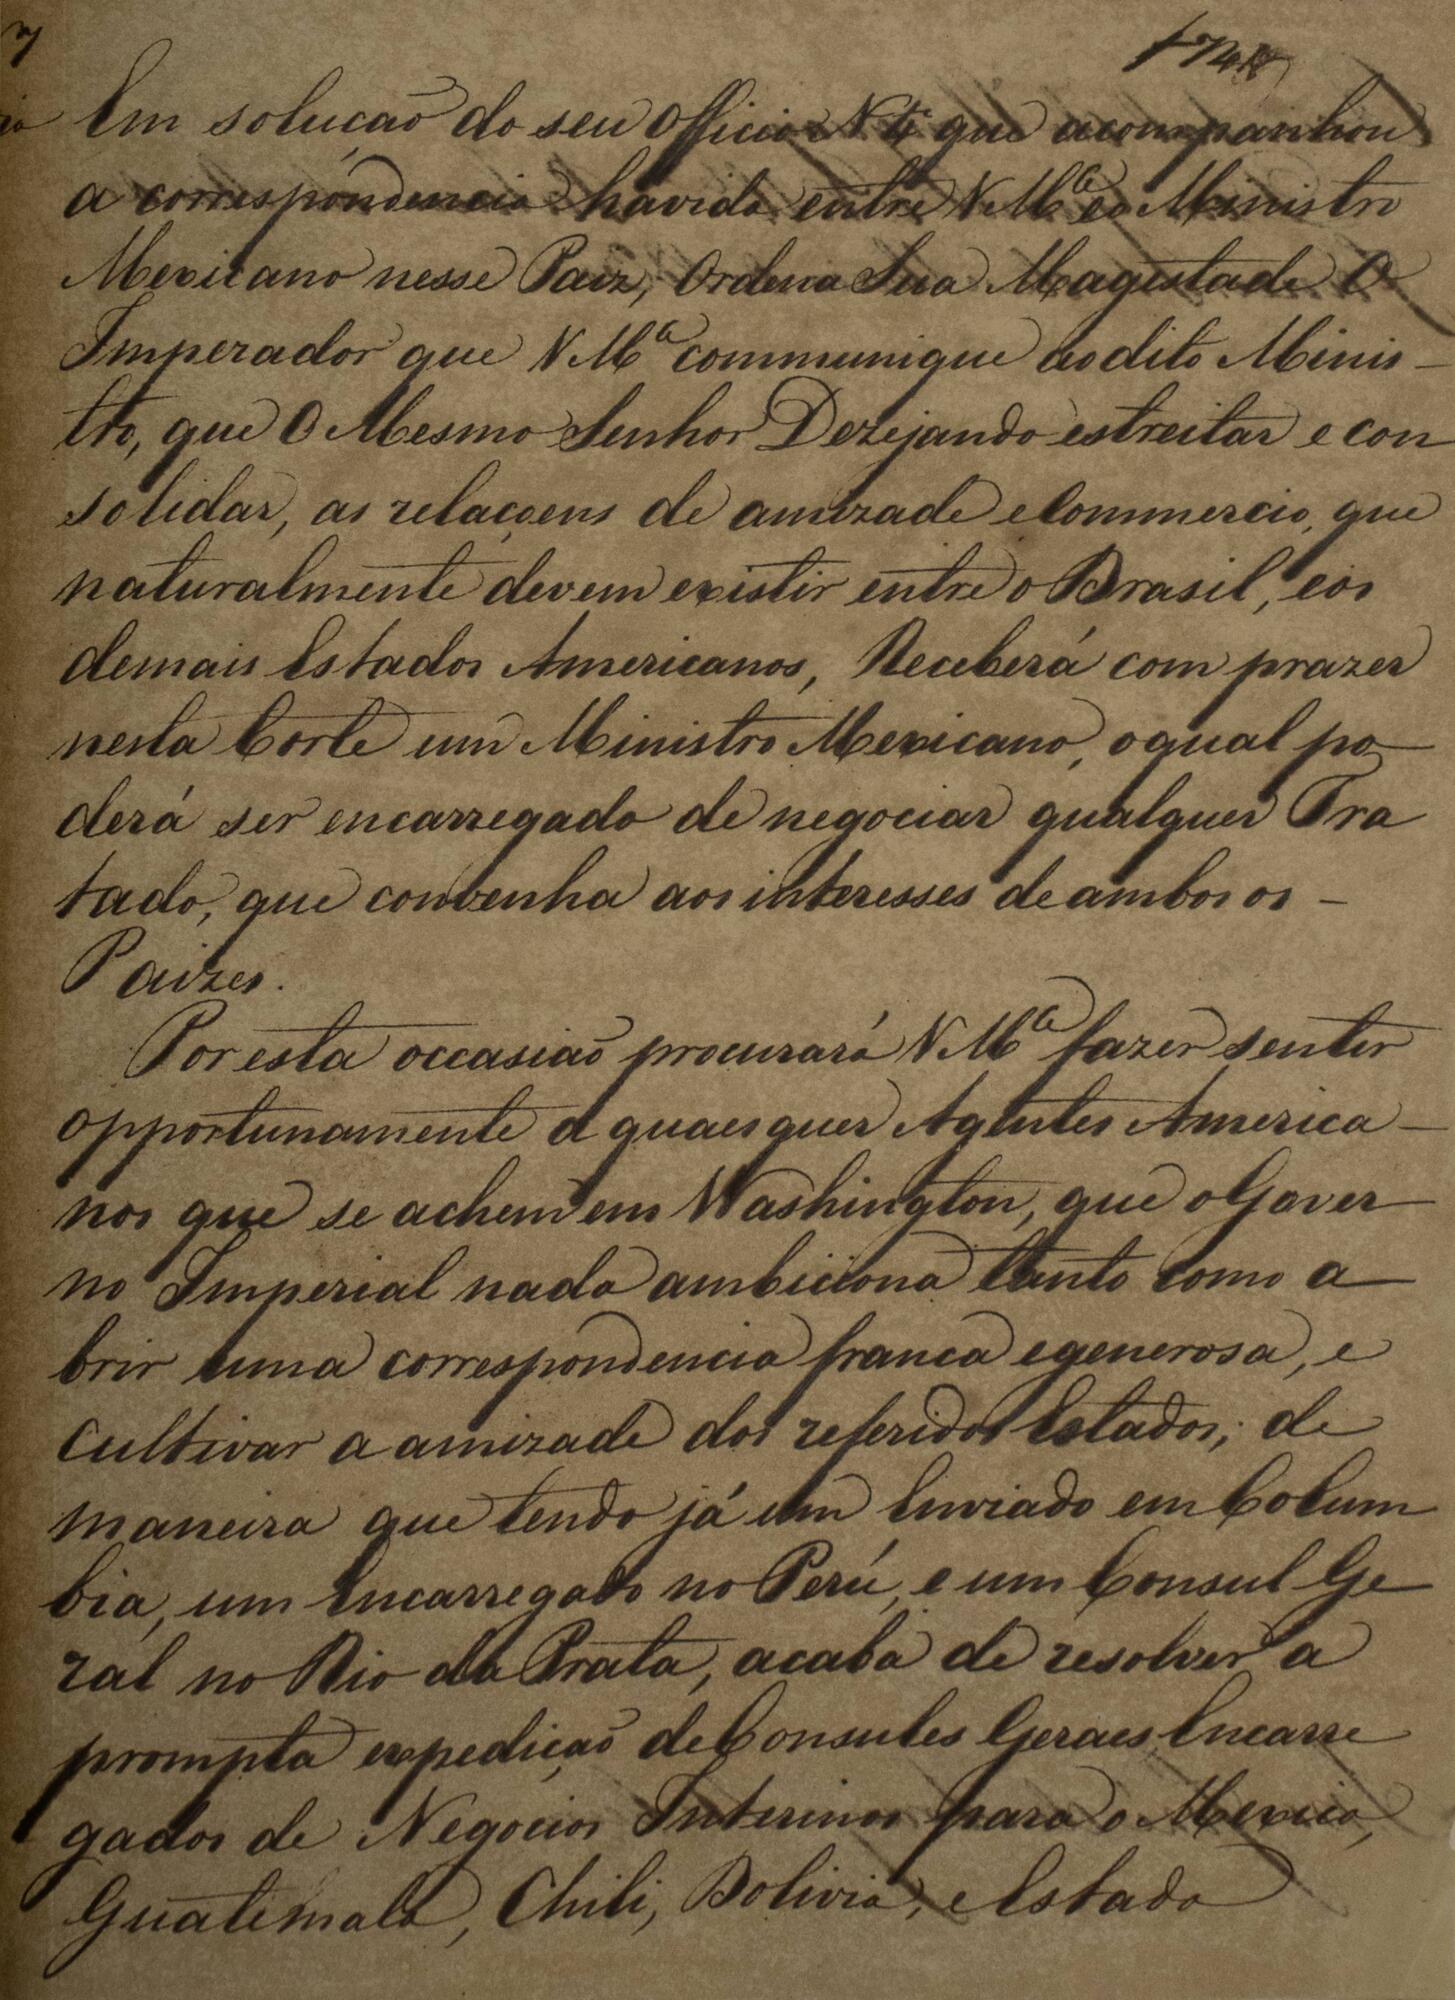 Em solução do seu Officio Nº 4 que acompanhou
a correspondencia havida entre V Mce e o Ministro
Mexicano nesse Paiz, Ordena Sua Magestade O
Imperador que V Mce communique ao dito Minis-
tro, que O Mesmo Senhor Dezejando estreitar e con
solidar, as relaçoens de amizade e Commercio, que
naturalmente devem existir entre o Brasil, e os
demais Estados Americanos, Receberá com prazer
nesta Corte um Ministro Mexicano, o qual po-
derá ser encarregado de negociar qualquer Tra
tado, que convenha aos interesses de ambos os -
Paizes.
Por esta occasião procurará V Mce fazer sentir
opportunamente a quaesquer Agentes America-
nos que se achem em Washington, que o Gover
no Imperial nada ambiciona tanto como a-
brir uma correspondencia franca e generosa, e
cultivar a amizade dos referidos Estados; de
maneira que tendo já um Enviado em Colum
bia, um Encarregado no Perú, e um Consul Ge-
ral no Rio da Prata, acaba de resolver a
prompta expedição de Consules Geraes Encarre
gados de Negocios Interinos para o Mexico,
Guatemala, Chili, Bolivia, e Estado